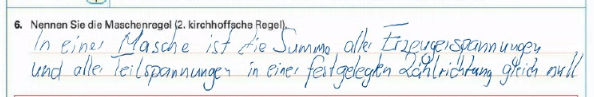 6. Nennen Sie die Maschenregel (2. kirchhoffsche Regel).
In einer Masche ist die Summe aller Erzeugerspannungen
und aller Teilspannungen in einer festgelegten Zählrichtung gleich null